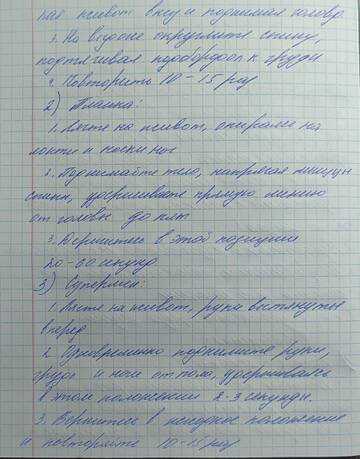 кая живот вниз и поднимая голову.
3. На выдохе округлите спину,
подтягивая подбородок к груди
4. Повторить 10-15 раз
2) Планка:
1. Лягте на живот, опираясь на
локти и носки ног
2. Поднимайте тело, напрягая мышцы
спины, удерживайте прямую линию
от головы до пят
3. Держитесь в этой позиции
20-60 секунд
3) Супермен:
1. Лягте на живот, руки вытянуты
вперед
2. Одновременно поднимите руки,
грудь и ноги от пола, удерживаясь
в этом положении 2-3 секунды.
3. Вернитесь в исходное положение
и повторяйте 10-15 раз